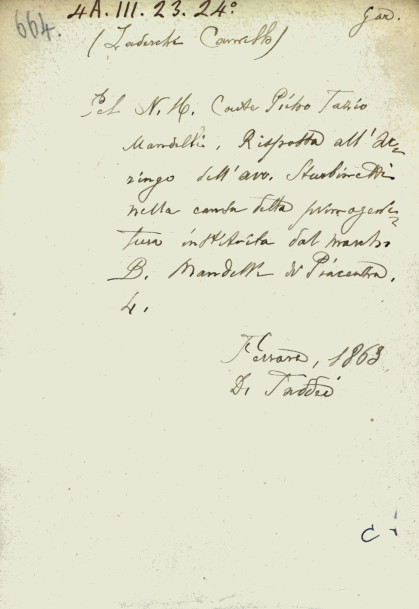 664.
4A. III. 23. 24°
Gar.
(Zaderchi Carcello)
Pel N. H. Conte Pietro Tazio
Mandelli, Risposta all'ar-
ringo dell'avv. Sturbinetti
nella causa della primogeni-
tura instituita dal march.
B. Mandelli di Piacenza.
4.
Ferrara, 1863
D. Taddei
C